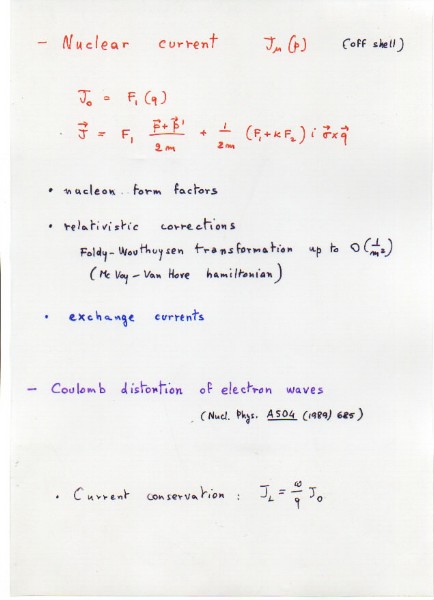 - Nuclear current Jμ(p) (off shell)
J₀ = F₁(q)
J⃗ = F₁ (p⃗+p⃗')/2m + 1/2m (F₁+κF₂) i σ⃗×q⃗
• nucleon form factors
• relativistic corrections
Foldy-Wouthuysen transformation up to O(1/m²)
(Mc Voy - Van Hove hamiltonian)
• exchange currents
- Coulomb distortion of electron waves
(Nucl. Phys. A504 (1989) 685)
• Current conservation : J_L = ω/q J₀